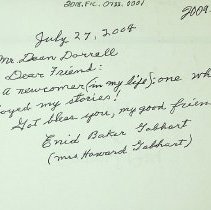 2018.FIC.0722.0001
2009.
July 27, 2004
Mr. Dean Dorrell
Dear Friend:
a newcomer (in my life); one wh
oyed my stories!
Got bless you, my good frien
Enid Baker Gabhart
(Mrs Howard Gabhart)